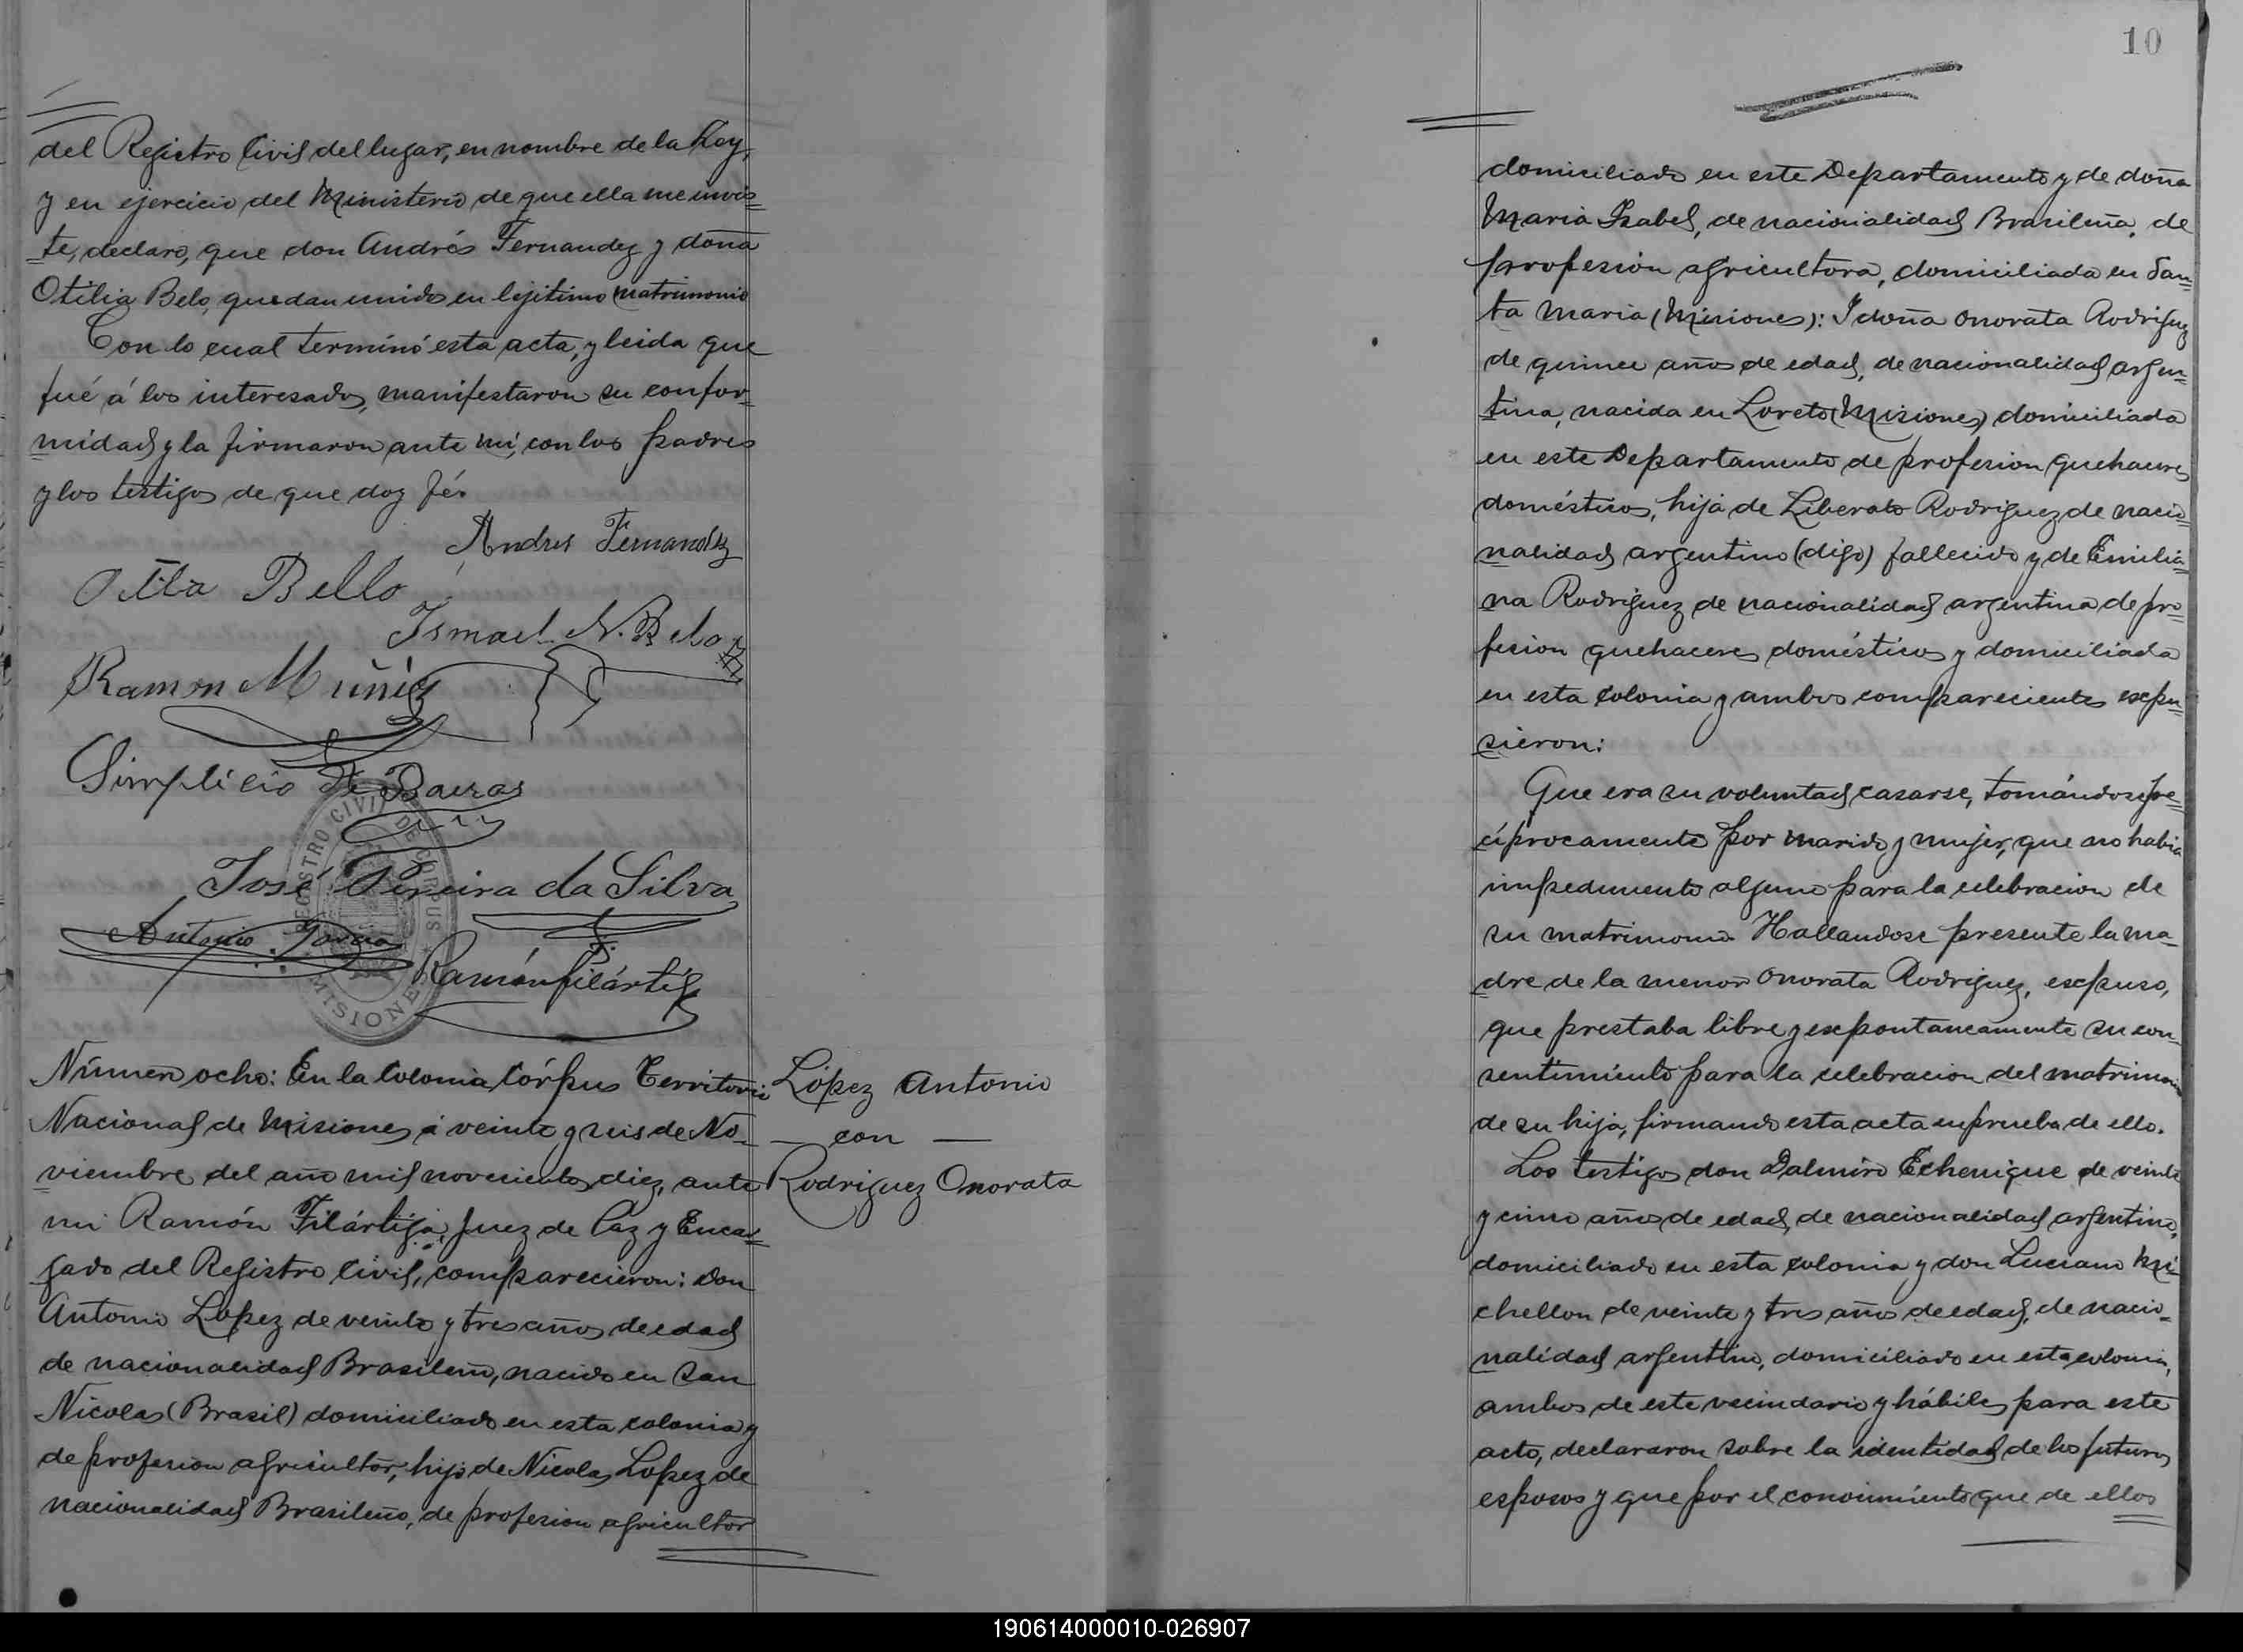 del Registro Civil del lugar, en nombre de la Ley,
y en ejercicio del Ministerio de que ella me invis=
te, declaro, que don Andrés Fernandez y doña
Otilia Belo, quedan unidos en lejitimo matrimonio
Con lo cual terminó esta acta, y leida que
fué á los interesados, manifestaron su confor=
midad y la firmaron ante mi, con los padres
y los testigos de que doy fé.
Andres Fernandez
Otilia Bello
Ismael N. Belo
Ramon Muñiz
Simplicio de
José Pereira da Silva
Antonio
Ramón Filártiga
REGISTRO CIVIL DE CORPUS
MISIONES
Número ocho: En la Colonia Córpus Territorio
Nacional de Misiones á veinte y seis de No=
viembre del año mil novecientos diez, ante
mi Ramón Filártiga, Juez de Paz y Encar=
gado del Registro Civil, comparecieron: Don
Antonio Lopez de veinte y tres años de edad
de nacionalidad Brasileño, nacido en San
Nicolas (Brasil) domiciliado en esta colonia y
de profesion agricultor, hijo de Nicolas Lopez de
nacionalidad Brasileño, de profesion agricultor
López Antonio
— con —
Rodriguez Onorata
10
domiciliado en este Departamento y de doña
Maria Isabel, de nacionalidad Brasileña, de
profesion agricultora, domiciliada en San=
ta Maria (Misiones): I doña Onorata Rodriguez
de quince años de edad, de nacionalidad argen=
tina, nacida en Loreto (Misiones) domiciliada
en este Departamento de profesion quehaceres
domésticos, hija de Liberato Rodriguez de nacio=
nalidad argentino (digo) fallecido y de Emilia=
na Rodriguez de nacionalidad argentina de pro=
fesion quehaceres domésticos y domiciliada
en esta colonia y ambos comparecientes expu=
sieron:
Que era su voluntad casarse, tomándose re=
ciprocamente por marido y mujer, que no habia
impedimento alguno para la celebracion de
su matrimonio. Hallandose presente la ma=
dre de la menor Onorata Rodriguez, expuso,
que prestaba libre y expontaneamente su con=
sentimiento para la celebracion del matrimonio
de su hija, firmando esta acta en prueba de ello.
Los testigos don Dalmiro Echenique de veinte
y cinco años de edad, de nacionalidad argentino,
domiciliado en esta colonia y don Luciano Mi=
chellon de veinte y tres años de edad, de nacio=
nalidad argentino, domiciliado en esta colonia,
ambos de este vecindario y hábiles para este
acto, declararon sobre la identidad de los futuros
esposos y que por el conocimiento que de ellos
190614000010-026907